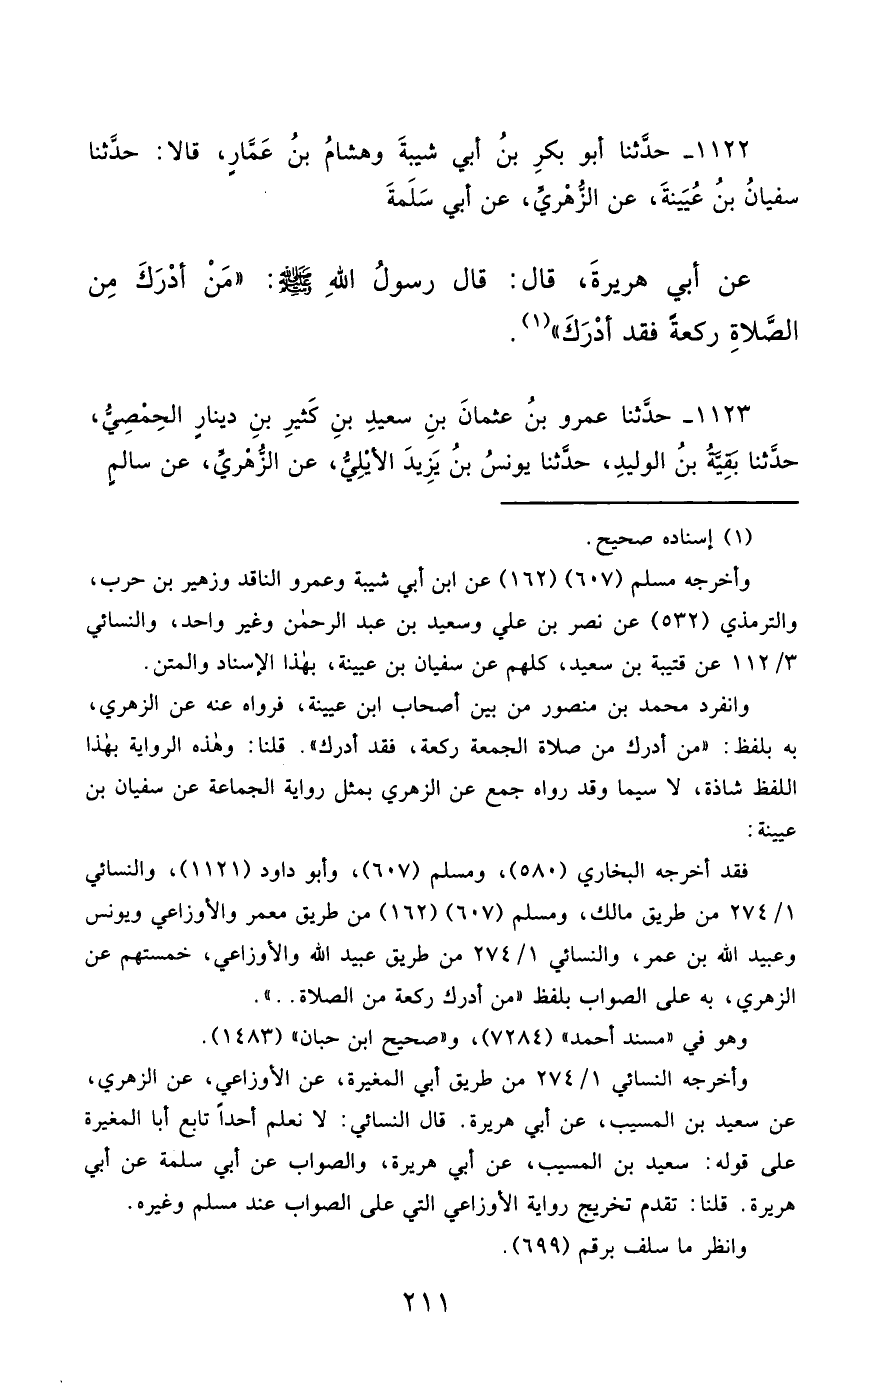 ١١٢٢ـ حدَّثنا أبو بكرِ بنُ أبي شيبةَ وهشامُ بنُ عَمَّارٍ، قالا: حدَّثنا
سفيانُ بنُ عُيَينةَ، عن الزُّهْريِّ، عن أبي سَلَمةَ
عن أبي هريرةَ، قال: قال رسولُ اللهِ ﷺ: «مَنْ أدْرَكَ مِن
الصَّلاةِ ركعةً فقد أدْرَكَ»(١).
١١٢٣ـ حدَّثنا عمرو بنُ عثمانَ بنِ سعيدِ بنِ كَثيرِ بنِ دينارٍ الحِمْصِيُّ،
حدَّثنا بَقِيَّةُ بنُ الوليدِ، حدَّثنا يونسُ بنُ يَزِيدَ الأيْليُّ، عن الزُّهْريِّ، عن سالمٍ
(١) إسناده صحيح.
وأخرجه مسلم (٦٠٧) (١٦٢) عن ابن أبي شيبة وعمرو الناقد وزهير بن حرب،
والترمذي (٥٣٢) عن نصر بن علي وسعيد بن عبد الرحمٰن وغير واحد، والنسائي
٣/ ١١٢ عن قتيبة بن سعيد، كلهم عن سفيان بن عيينة، بهٰذا الإسناد والمتن.
وانفرد محمد بن منصور من بين أصحاب ابن عيينة، فرواه عنه عن الزهري،
به بلفظ: «من أدرك من صلاة الجمعة ركعة، فقد أدرك». قلنا: وهٰذه الرواية بهٰذا
اللفظ شاذة، لا سيما وقد رواه جمع عن الزهري بمثل رواية الجماعة عن سفيان بن
عيينة:
فقد أخرجه البخاري (٥٨٠)، ومسلم (٦٠٧)، وأبو داود (١١٢١)، والنسائي
١/ ٢٧٤ من طريق مالك، ومسلم (٦٠٧) (١٦٢) من طريق معمر والأوزاعي ويونس
وعبيد الله بن عمر، والنسائي ١/ ٢٧٤ من طريق عبيد الله والأوزاعي، خمستهم عن
الزهري، به على الصواب بلفظ «من أدرك ركعة من الصلاة..».
وهو في «مسند أحمد» (٧٢٨٤)، و«صحيح ابن حبان» (١٤٨٣).
وأخرجه النسائي ١/ ٢٧٤ من طريق أبي المغيرة، عن الأوزاعي، عن الزهري،
عن سعيد بن المسيب، عن أبي هريرة. قال النسائي: لا نعلم أحداً تابع أبا المغيرة
على قوله: سعيد بن المسيب، عن أبي هريرة، والصواب عن أبي سلمة عن أبي
هريرة. قلنا: تقدم تخريج رواية الأوزاعي التي على الصواب عند مسلم وغيره.
وانظر ما سلف برقم (٦٩٩).
٢١١